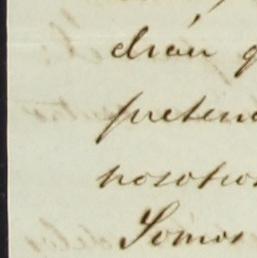 drán q
preten
nosotros
Somos